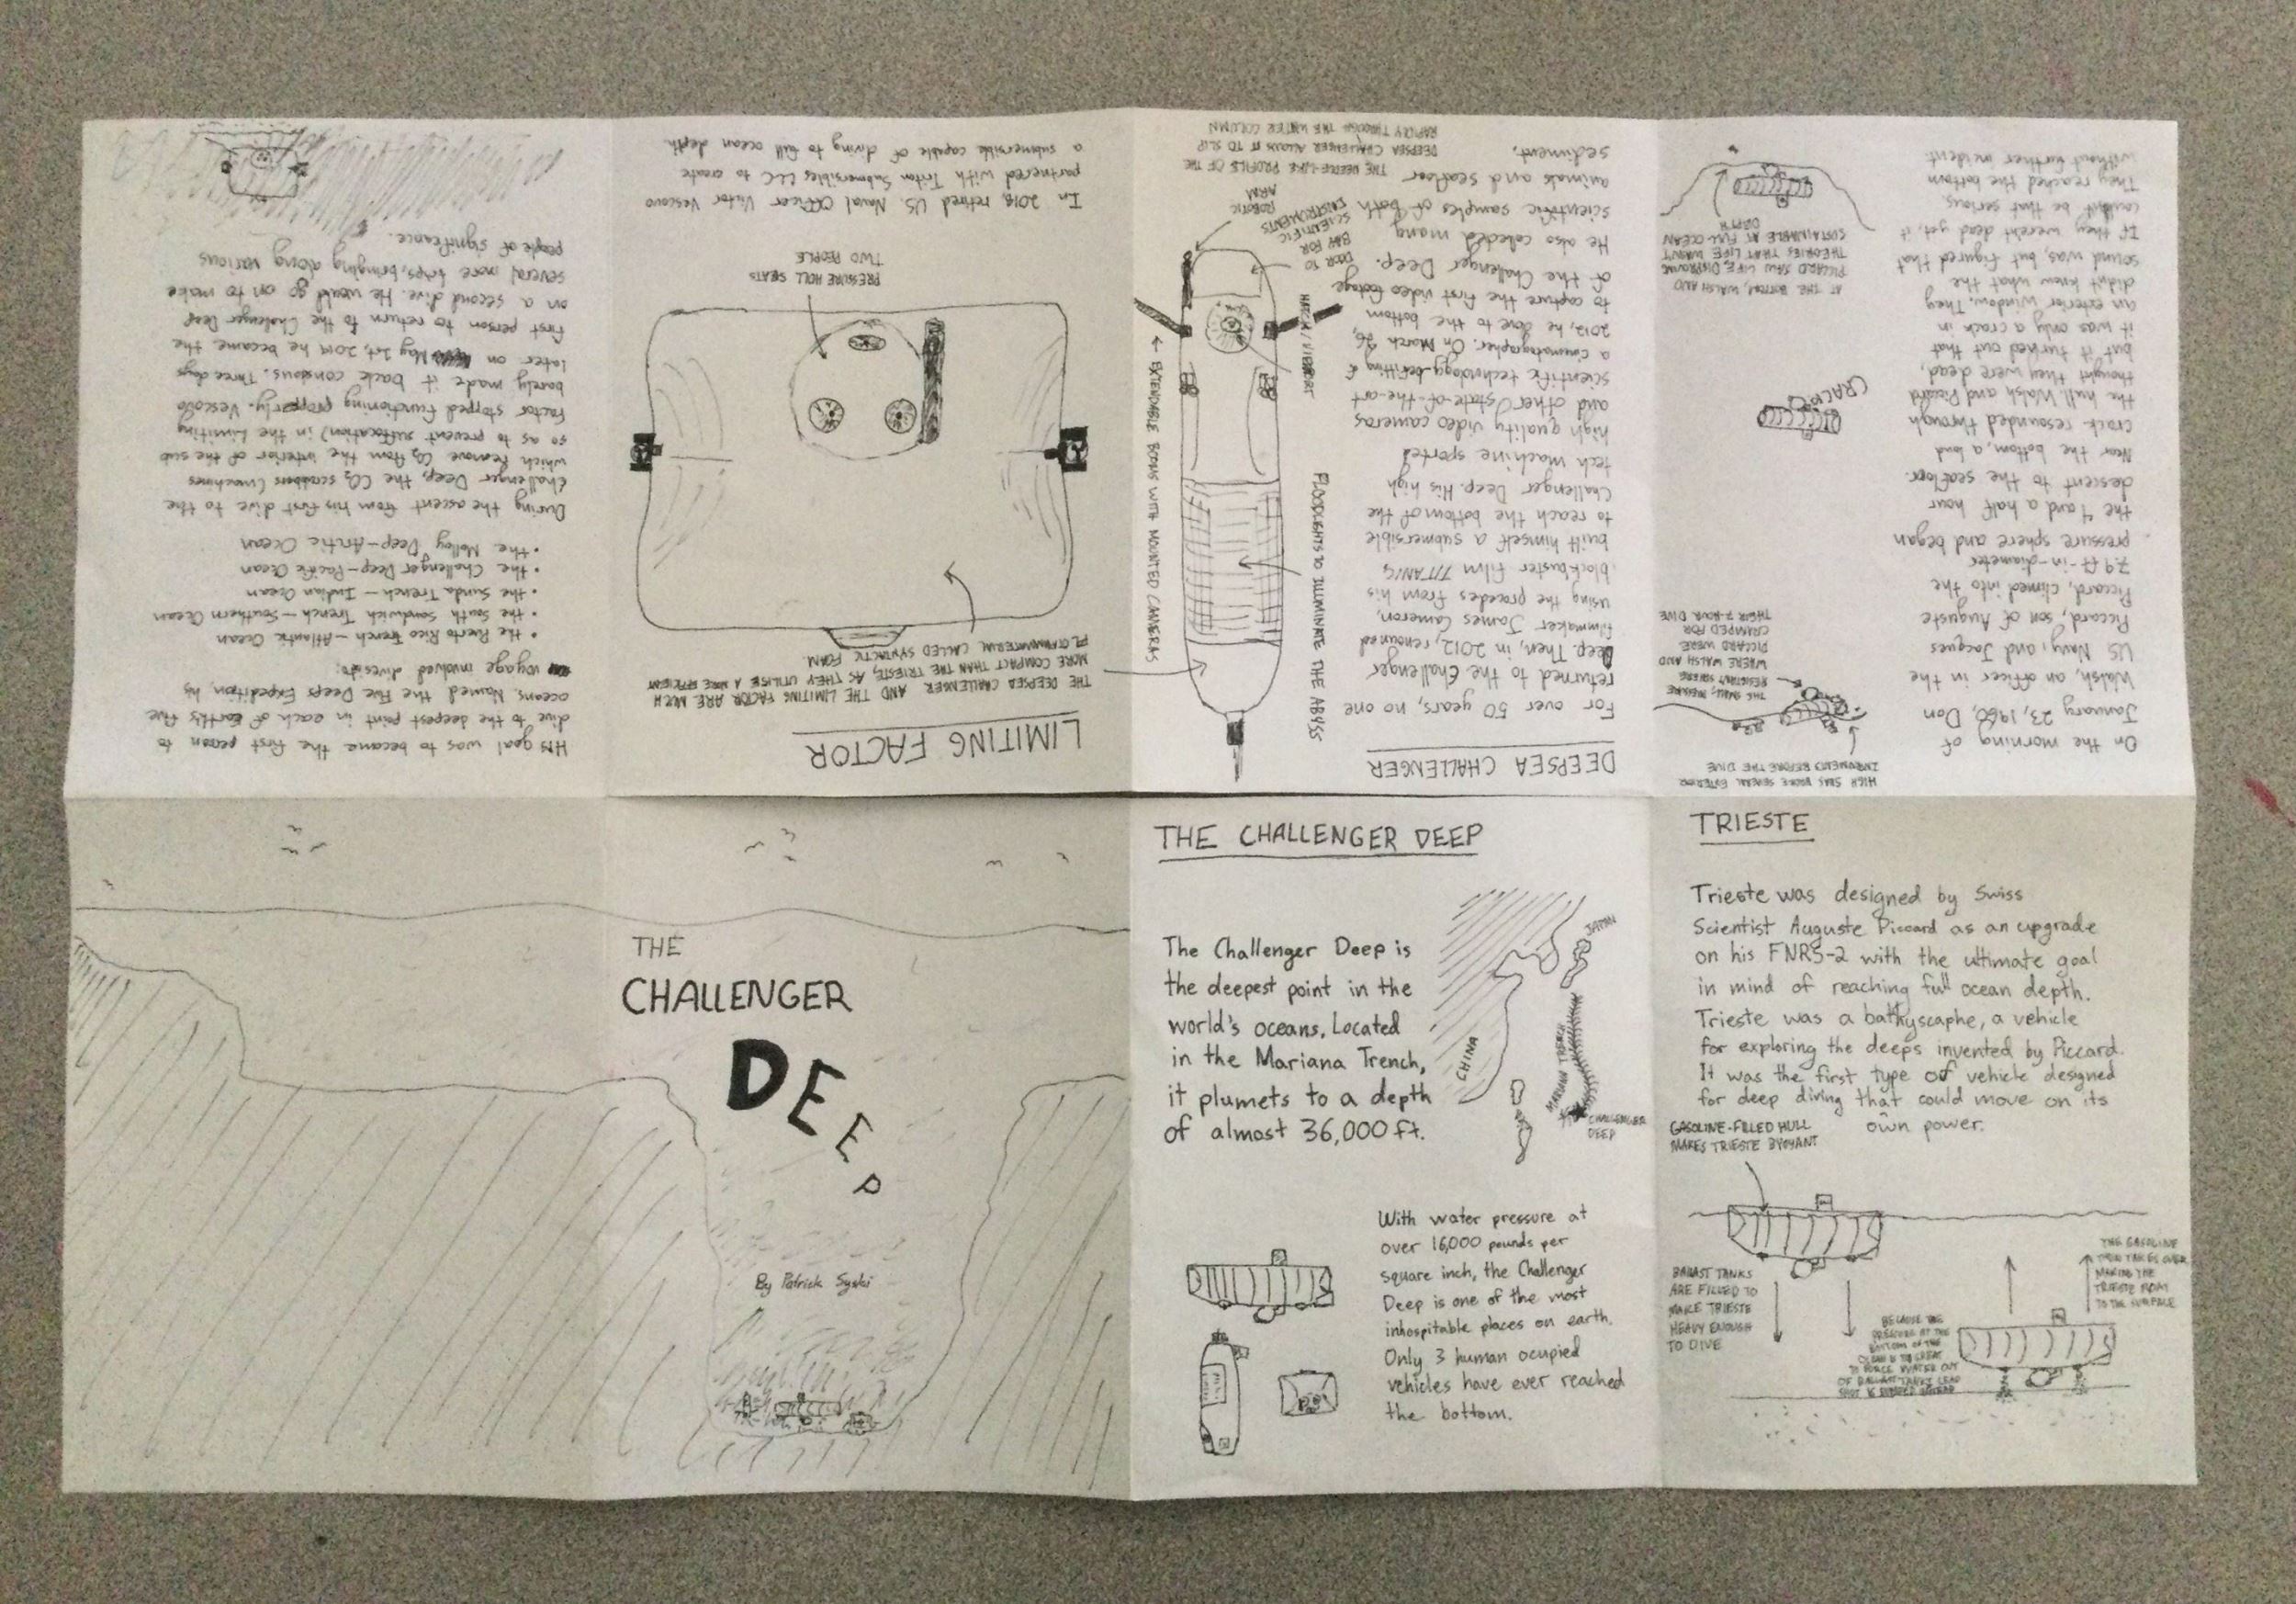 THE
CHALLENGER
DEEP
By Patrick Syski
THE CHALLENGER DEEP
The Challenger Deep is
the deepest point in the
world's oceans. Located
in the Mariana Trench,
it plumets to a depth
of almost 36,000 ft.
JAPAN
CHINA
MARIANA TRENCH
CHALLENGER
DEEP
With water pressure at
over 16,000 pounds per
square inch, the Challenger
Deep is one of the most
inhospitable places on earth.
Only 3 human ocupied
vehicles have ever reached
the bottom.
TRIESTE
Trieste was designed by Swiss
Scientist Auguste Piccard as an upgrade
on his FNRS-2 with the ultimate goal
in mind of reaching full ocean depth.
Trieste was a bathyscaphe, a vehicle
for exploring the deeps invented by Piccard.
It was the first type of vehicle designed
for deep diving that could move on its
own power.
GASOLINE-FILLED HULL
MAKES TRIESTE BYOYANT
BALLAST TANKS
ARE FILLED TO
MAKE TRIESTE
HEAVY ENOUGH
TO DIVE
BECAUSE THE
PRESSURE AT THE
BOTTOM OF THE
OCEAN IS TO GREAT
TO FORCE WATER OUT
OF BALLAST TANKS LEAD
SHOT IS DUMPED INSTEAD
THE GASOLINE
THEN TAKES OVER,
MAKING THE
TRIESTE FLOAT
TO THE SURFACE
On the morning of
January 23, 1960, Don
Walsh, an officer in the
US Navy, and Jacques
Piccard, son of Auguste
Piccard, climed into the
7.9 ft-in-diameter
pressure sphere and began
the 4 and a half hour
descent to the seafloor.
Near the bottom, a loud
crack resounded through
the hull. Walsh and Piccard
thought they were dead,
but it turned out that
it was only a crack in
an exterior window. They
didn't know what the
sound was, but figured that
if they weren't dead yet, it
couldn't be that serious.
They reached the bottom
without further incident
HIGH SEAS BROKE SEVERAL EXTERIOR
INSRUMENTS BEFORE THE DIVE
THE SMALL, PRESSURE
RESISTANT SPHERE
WHERE WALSH AND
PICCARD WERE
CRAMPED FOR
THEIR 9-HOUR DIVE
CRACK
AT THE BOTTOM, WALSH AND
PICCARD SAW LIFE, DISPROVING
THEORIES THAT LIFE WASN'T
SUSTAINABLE AT FULL OCEAN
DEPTH
DEEPSEA CHALLENGER
For over 50 years, no one
returned to the Challenger
Deep. Then, in 2012, renouned
filmmaker James Cameron,
using the procedes from his
blockbuster film TITANIC
built himself a submersible
to reach the bottom of the
Challenger Deep. His high
tech machine sported
high quality video cameras
and other state-of-the-art
scientific technology befitting of
a cinematographer. On March 26,
2012, he dove to the bottom
to capture the first video footage
of the Challenger Deep.
He also colected many
scientific samples of both
animals and seafloor
sediment.
FLOODLIGHTS TO ILLUMINATE THE ABYSS
HATCH/VIEWPORT
DOOR TO
BAY FOR
SCIENTIFIC
INSTRUMENTS
ROBOTIC
ARM
← EXTENDABLE BOOMS WITH MOUNTED CAMERAS
THE NEEDLE-LIKE PROFILE OF THE
DEEPSEA CHALLENGER ALLOWS IT TO SLIP
RAPIDLY THROUGH THE WATER COLUMN
LIMITING FACTOR
THE DEEPSEA CHALLENGER AND THE LIMITING FACTOR ARE MUCH
MORE COMPACT THAN THE TRIESTE, AS THEY UTILISE A MORE EFFICIENT
FLOTATION MATERIAL CALLED SYNTACTIC FOAM
PRESSURE HULL SEATS
TWO PEOPLE
In 2018, retired US Naval Officer Victor Vescovo
partnered with Triton Submersibles LLC to create
a submersible capable of diving to full ocean depth.
His goal was to became the first person to
dive to the deepest point in each of Earth's five
oceans. Named the Five Deeps Expedition, his
voyage involved dives to:
• the Puerto Rico Trench - Atlantic Ocean
• the South Sandwich Trench - Southern Ocean
• the Sunda Trench - Indian Ocean
• the Challenger Deep - Pacific Ocean
• the Molloy Deep - Arctic Ocean
During the ascent from his first dive to the
Challenger Deep, the CO2 scrubbers (machines
which remove CO2 from the interior of the sub
so as to prevent suffocation) in the Limiting
Factor stopped functioning propperly. Vescovo
barely made it back consious. Three days
later on May 1st, 2019, he became the
first person to return to the Challenger Deep
on a second dive. He would go on to make
several more trips, bringing along various
people of significance.